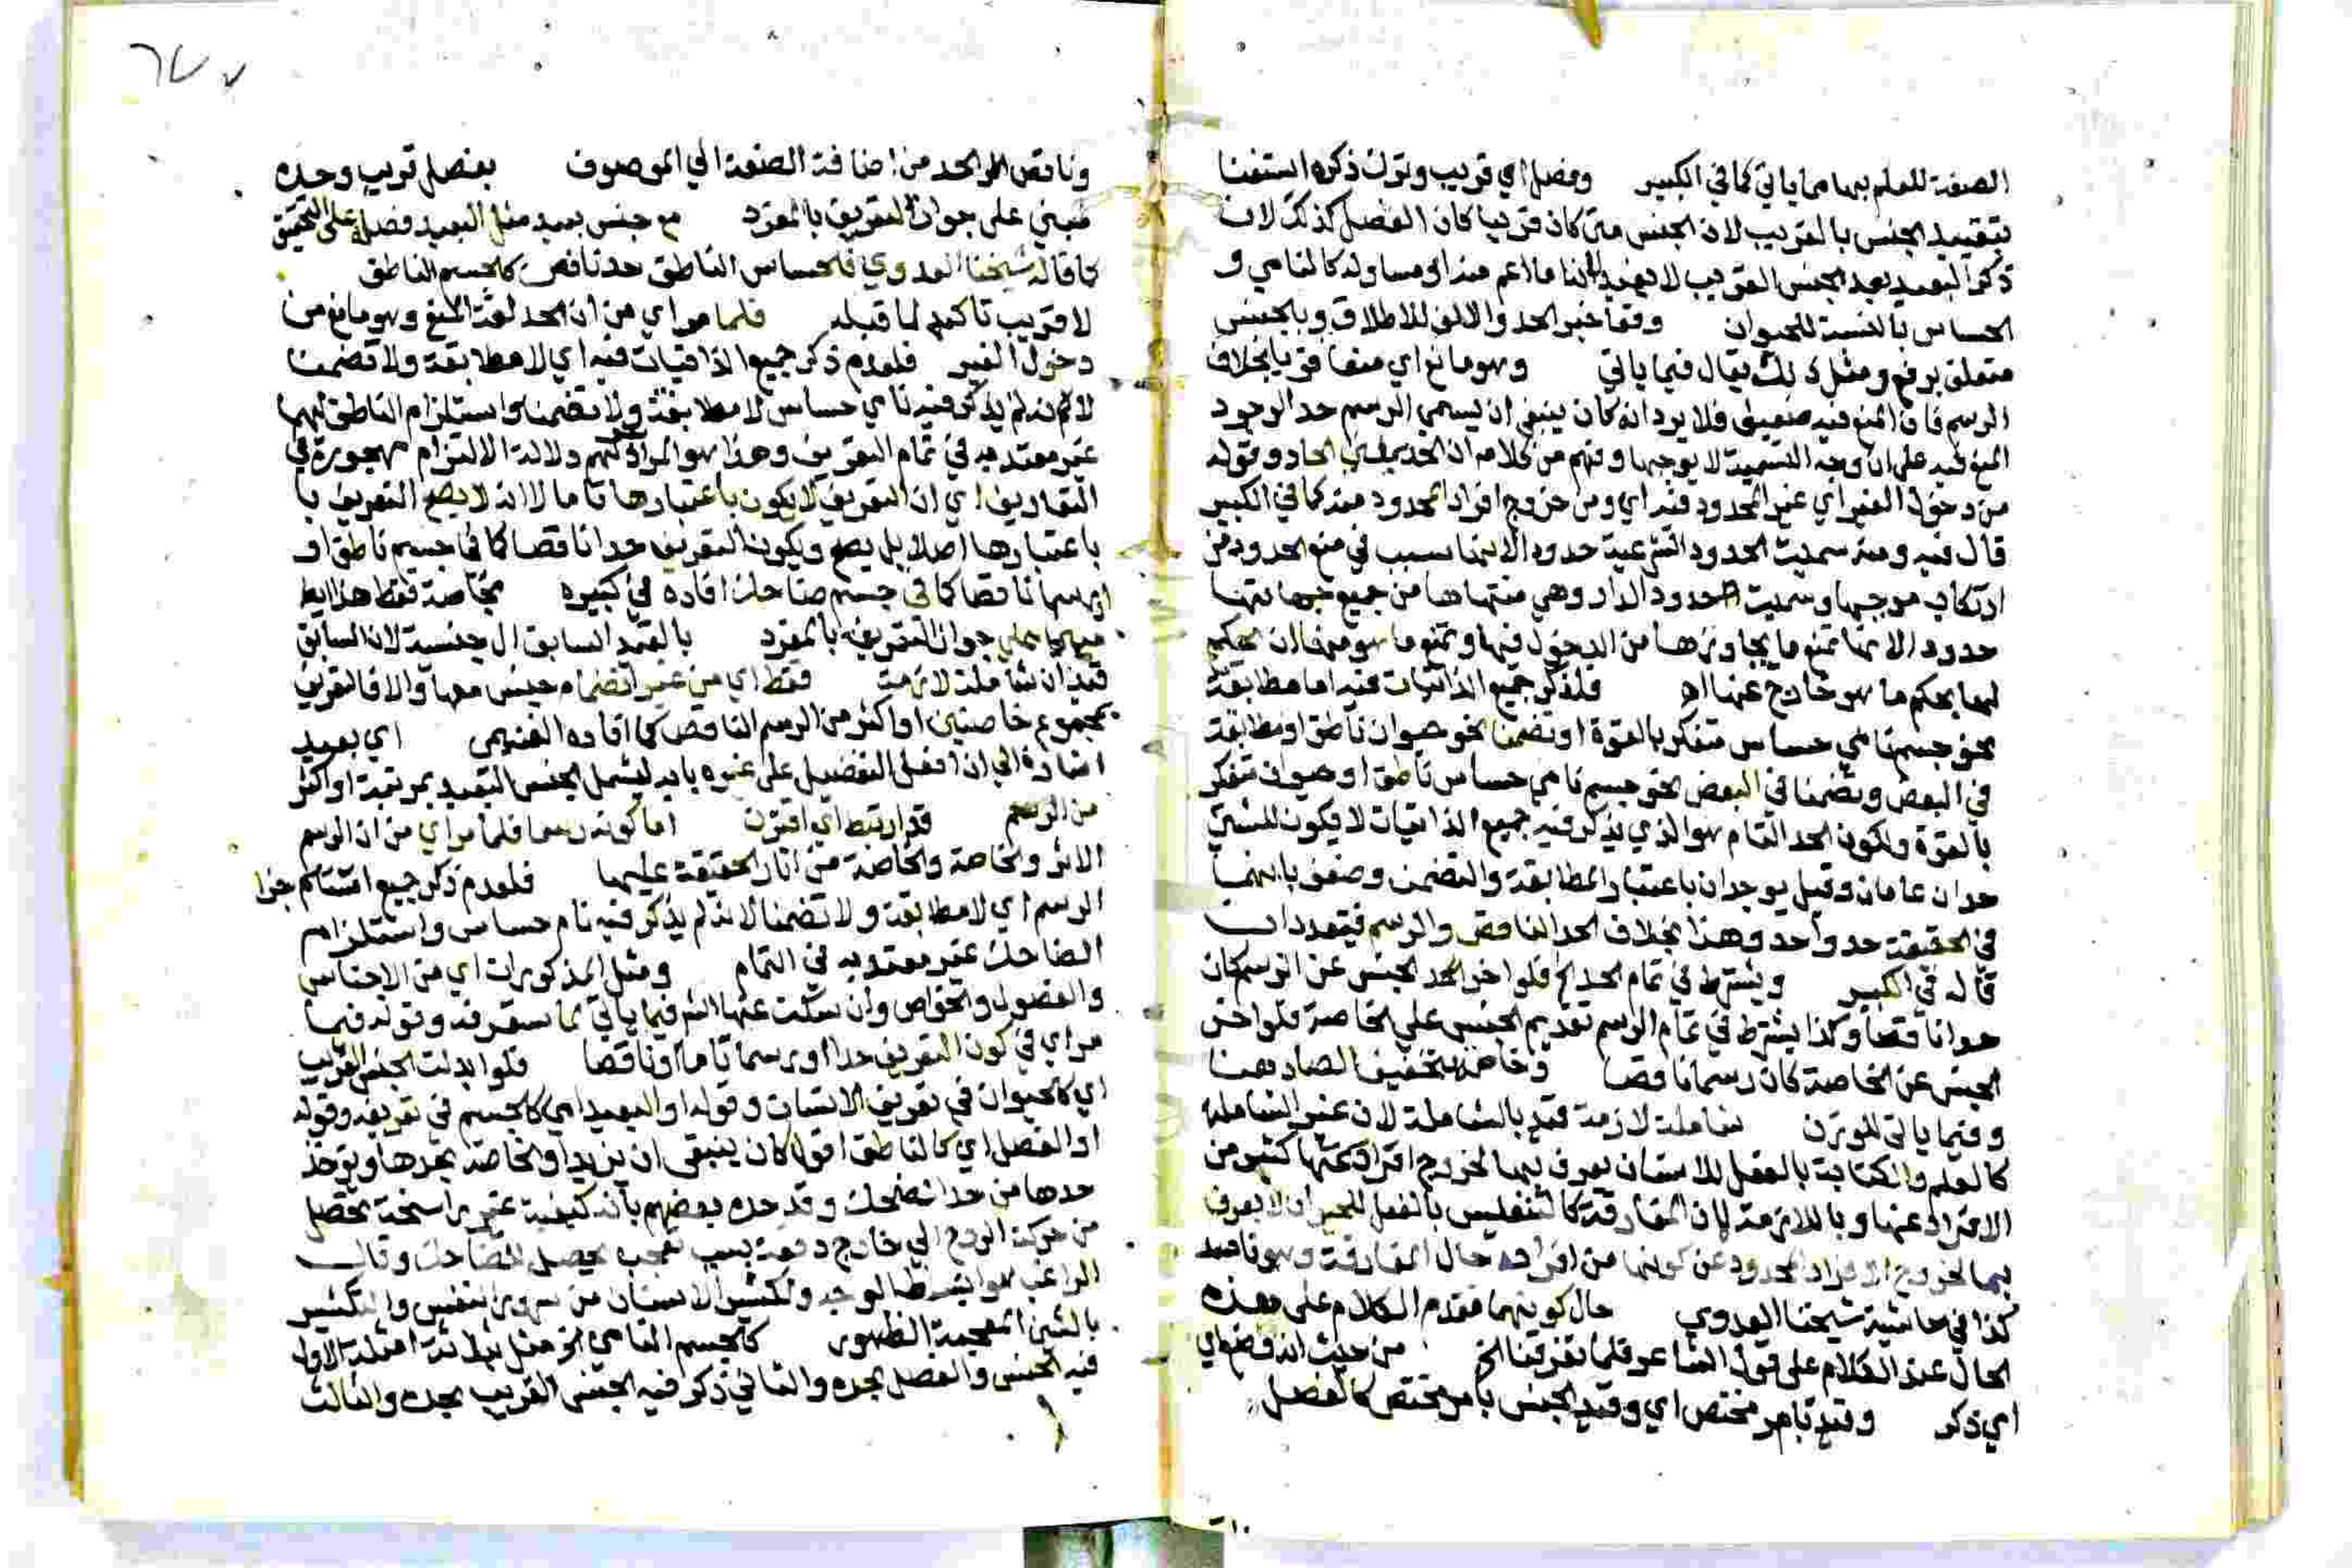 الصفة للعلم بها مما ياتي كما في الكبير وفصل اي قريب وترك ذكره استغنا
بتقييد الجنس بالقريب لان الجنس متى كان قريبا كان الفصل كذلك لان
ذكر البعيد بعد الجنس القريب لا يفيد لانه اما اعم منه او مساو له كالنامي و
الحساس بالنسبة للحيوان وقعا خبر الحد والالف للاطلاق وبالجنس
متعلق بوقع ومثل ذلك يقال فيما ياتي وهو مانع اي منعا قويا بخلاف
الرسم فان المنع فيه ضعيف فلا يرد انه كان ينبغي ان يسمي الرسم حد الوجود
المنع فيه على ان وجه التسمية لا يوجبها وفهم من كلامه ان الحد بمعني الحاد وقوله
من دخول الغير اي غير المحدود فيه اي ومن خروج افراد المحدود منه كما في الكبير
قال فيه ومنه سميت الحدود الشرعية حدودا لانها سبب في منع المحدود من
ارتكاب موجبها وسميت حدود الدار وهي منتهاها من جميع جهاتها
حدودا لانها تمنع ما يجاورها من الدخول فيها وتمنع ما هو منها ان يحكم
لها بحكم ما هو خارج عنها اه فلذكر جميع الذاتيات فيه اما مطابقة
نحو جسم نامي حساس متفكر بالقوة او تضمنا نحو حيوان ناطق او مطابقة
في البعض وتضمنا في البعض نحو جسم نامي حساس ناطق او حيوان متفكر
بالقوة ولكون الحد التام هو الذي يذكر فيه جميع الذاتيات لا يكون للشئ
حدان تامان وقيل يوجدان باعتبار المطابقة والتضمن وضعف بانهما
في الحقيقة حد واحد وهذا بخلاف الحد الناقص والرسم فيتعددان
قاله في الكبير ويشترط في تمام الحد الخ فلو اخر الجنس عن الرسم كان
حدا ناقصا وكذا يشترط في تمام الرسم تقديم الجنس على الخاصة فلو اخر
الجنس عن الخاصة كان رسما ناقصا وخاصة بتخفيف الصاد هنا
وفيما ياتي للوزن شاملة لازمة قيد بالشاملة لان غير الشاملة
كالعلم والكتابة بالفعل للانسان يعرف بها لخروج افراد كثير من
الافراد عنها وباللازمة لان المفارقة كالتنفس بالفعل للحيوان لا يعرف
بها لخروج الافراد المحدود عن كونها من افراده حال المفارقة وهو فاسد
كذا في حاشية شيخنا العدوي حال كونهما فقدم الكلام على هذه
الحال عند الكلام على قول الشاعر قلما تفرقنا الخ من حيث انه وضع اي
اي ذكر وقيد بامر مختص اي وقيد الجنس بامر مختص كالفصل
وناقص الحد من اضافة الصفة الي الموصوف بفصل قريب وحده
مبني على جواز التعريف بالمفرد مع جنس بعيد مثل البعيد فصل على التحقيق
كما قاله شيخنا العدوي فالحساس الناطق حد ناقص كالجسم الناطق
لا قريب تاكيد لما قبله فلما مر اي من ان الحد لغة المنع وهو مانع من
دخول الغير فلعدم ذكر جميع الذاتيات فيه اي لا مطابقة ولا تضمنا
لانه لم يذكر فيه نامي حساس لا مطابقة ولا تضمنا واستلزام الناطق لهما
غير معتد به في تمام التعريف وهذا هو المراد بقولهم دلالة الالتزام مهجورة في
التعاريف اي ان التعريف لا يكون باعتبارها تاما لا انه لا يصح التعريف با
باعتبارها اصلا بل يصح ويكون التعريف حدا ناقصا كما في جسم ناطق او
رسما ناقصا كما في جسم ضاحك افاده في كبيره بخاصة فقط هذا ايضا
مبني على جواز التعريف بالمفرد بالقيد السابق ال جنسية لان السابق
قيدان شاملة لازمة فقط اي من غير انضمام جنس معها والا فالتعريف
بمجموع خاصتين او اكثر من الرسم الناقص كما افاده الغنيمي اي بعيد
اشارة الي ان افعل التفضيل على غير بابه ليشمل الجنس البعيد بمرتبة او اكثر
من الرسم قد ارتبط اي اقترن اما كونه رسما فلما مر اي من ان الرسم
الاثر والخاصة من اثار الحقيقة عليها فلعدم ذكر جميع اجزا
الرسم اي لا مطابقة ولا تضمنا لانه لم يذكر فيه نام حساس واستلزام
الضاحك غير معتد به في التمام ومثل المذكورات اي من الاجناس
والفصول والخواص وان سكت عنها الشر فيما ياتي لما ستعرفه وقوله فيما
مر اي في كون التعريف حدا او رسما تاما او ناقصا فلو ابدلت الجنس القريب
اي كالحيوان في تعريف الانسان وقوله او البعيد اي كالجسم في تعريفه وقوله
او الفصل اي كالناطق اقول كان ينبغي ان يزيد او الخاصة بحدها ويوخذ
حدها من حد الضحك وقد حده بعضهم بانه كيفية غير راسخة تحصل
من حركة الروح الي خارج دفعة بسبب تعجب يحصل للضاحك وقال
الراغب هو انبساط الوجه وتكشر الاسنان من سرور النفس والتكشير
بالشين المعجمة الظهور كالجسم النامي الخ مثل بثلاثة امثلة الاول
فيه الجنس والفصل بحده والثاني ذكر فيه الجنس القريب بحده والثالث